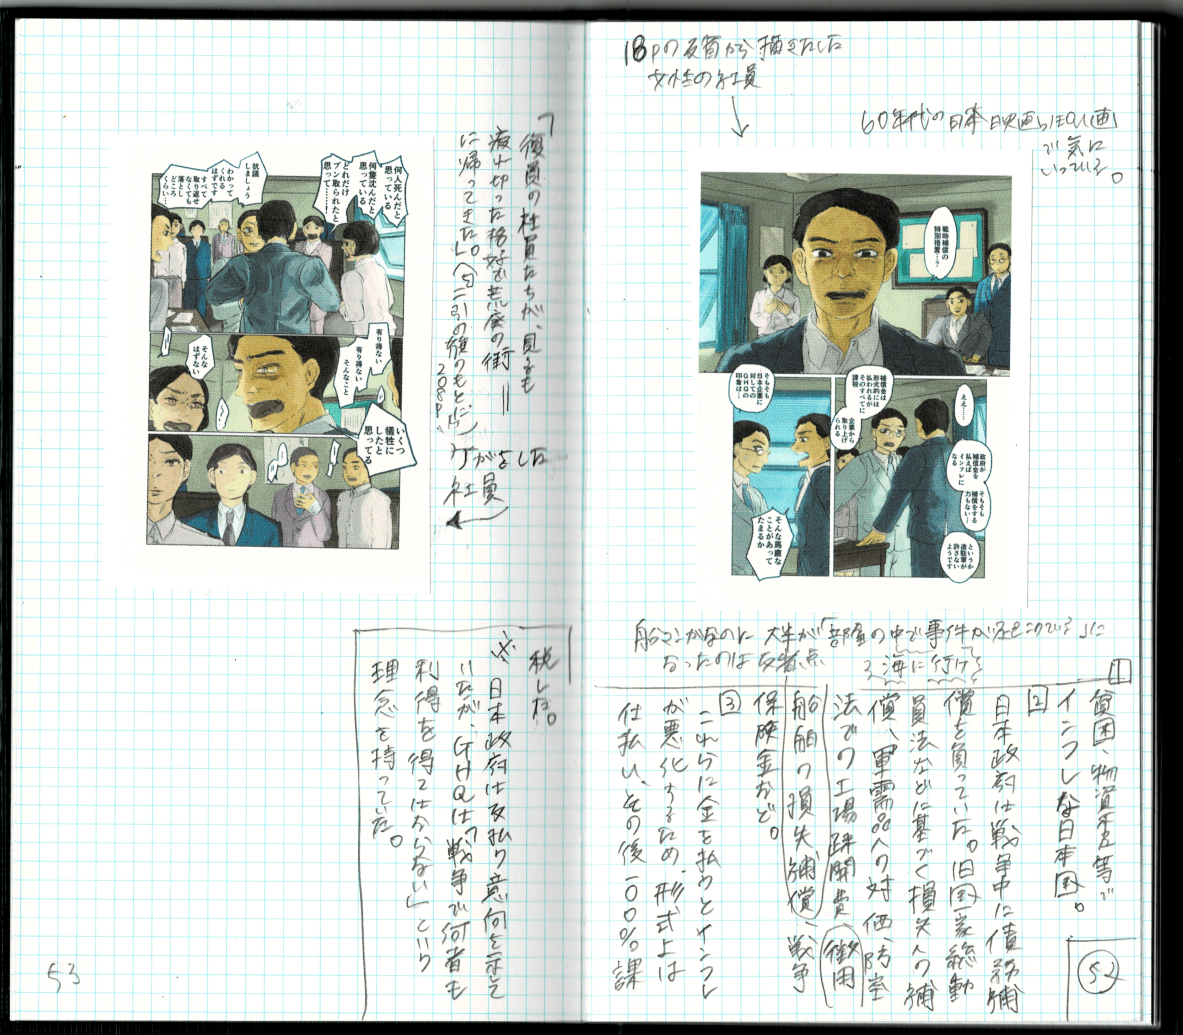 18Pの反省から描きたした
女性の社員
60年代の日本映画っぽい画
で気に
いっている。
戦時補償の
特別措置…?
ええ……
補償金は
形式的には
払われるが
そのすべてに
課税
企業から
取り上げ
られる
政府が
補償金を
払えば
インフレに
なる
そもそも
補償をする
力もない…
というか
進駐軍が
許さない
ようです
そもそも
日本企業に
対しての
GHQの
印象は…
そんな馬鹿な
ことがあって
たまるか
船マンガなのに大半が「部屋の中で事件が起こっている」に
なったのは反省点
海に行け
1
貧困、物資不足等で
インフレな日本国。
2
日本政府は戦争中に債務補
償を負っていた。旧国家総動
員法などに基づく損失への補
償、軍需品への対価、防空
法での工場疎開費、徴用
船舶の損失補償、戦争
保険金など。
3
これらに金を払うとインフレ
が悪化するため、形式上は
仕払い、その後一〇〇%課
52
「復員の社員たちが、見るも
疲れ切った格好で荒廃の街||
に帰ってきた。」(『二引の旗のもとに』
208P)
ケガをした
社員
何人死んだと
思っている
何隻沈んだと
思っている
どれだけ
ブン取られたと
思って……!
抗議
しましょう
わかって
くれる
はずです
すべて
取り返せ
なくても
落とし
どころ
くらい…
有り得ない
有り得ない
そんなこと
そんな
はずない
いくつ
犠牲に
したと
思ってる
税した。
※日本政府は支払う意向を示して
いたが、GHQは「戦争で何者も
利得を得てはならない」という
理念を持っていた。
53